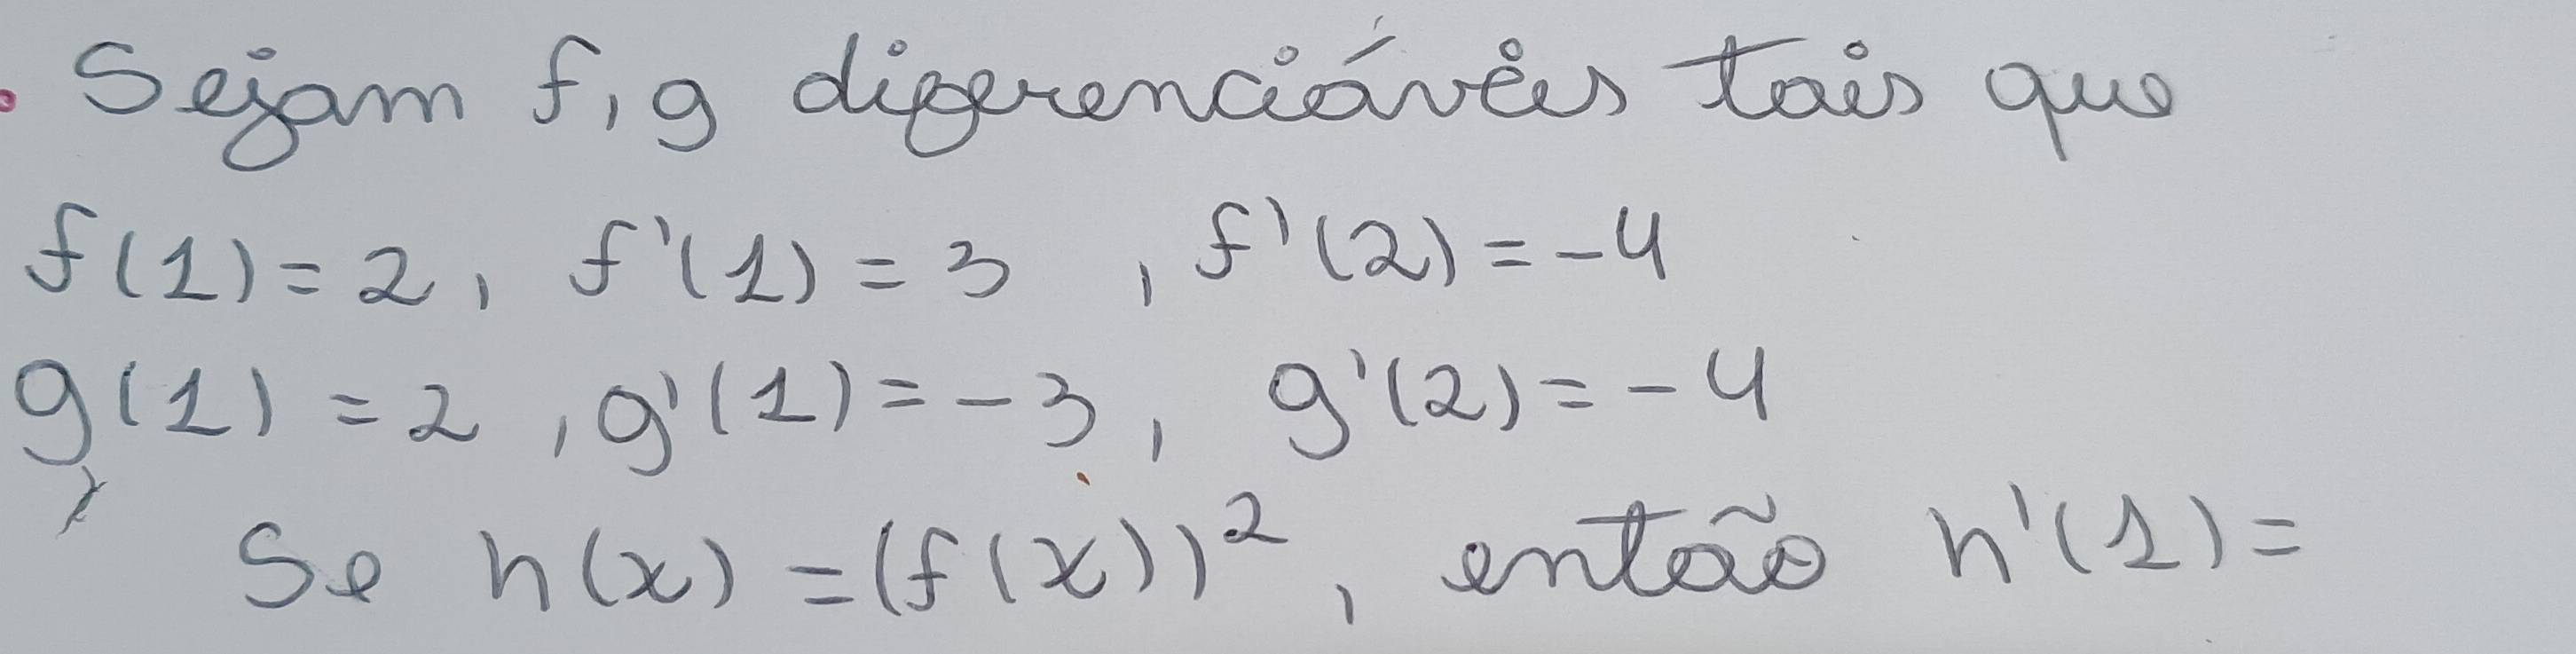 Sejam f, g diferenciáveis tais que
f(1) = 2, f'(1) = 3 , f'(2) = -4
g(1) = 2 , g'(1) = -3 , g'(2) = -4
Se h(x) = (f(x))², então h'(1) =